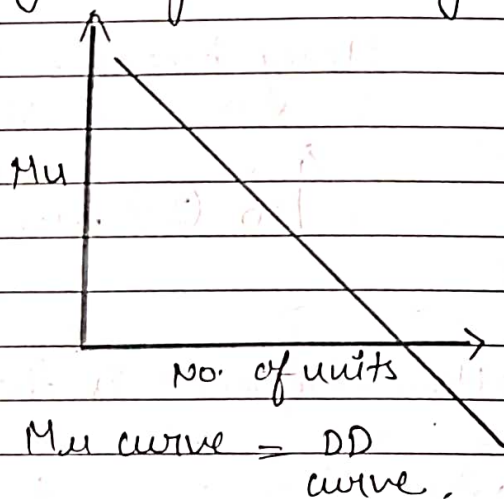 Mu
No. of units
Mu curve = DD
curve.